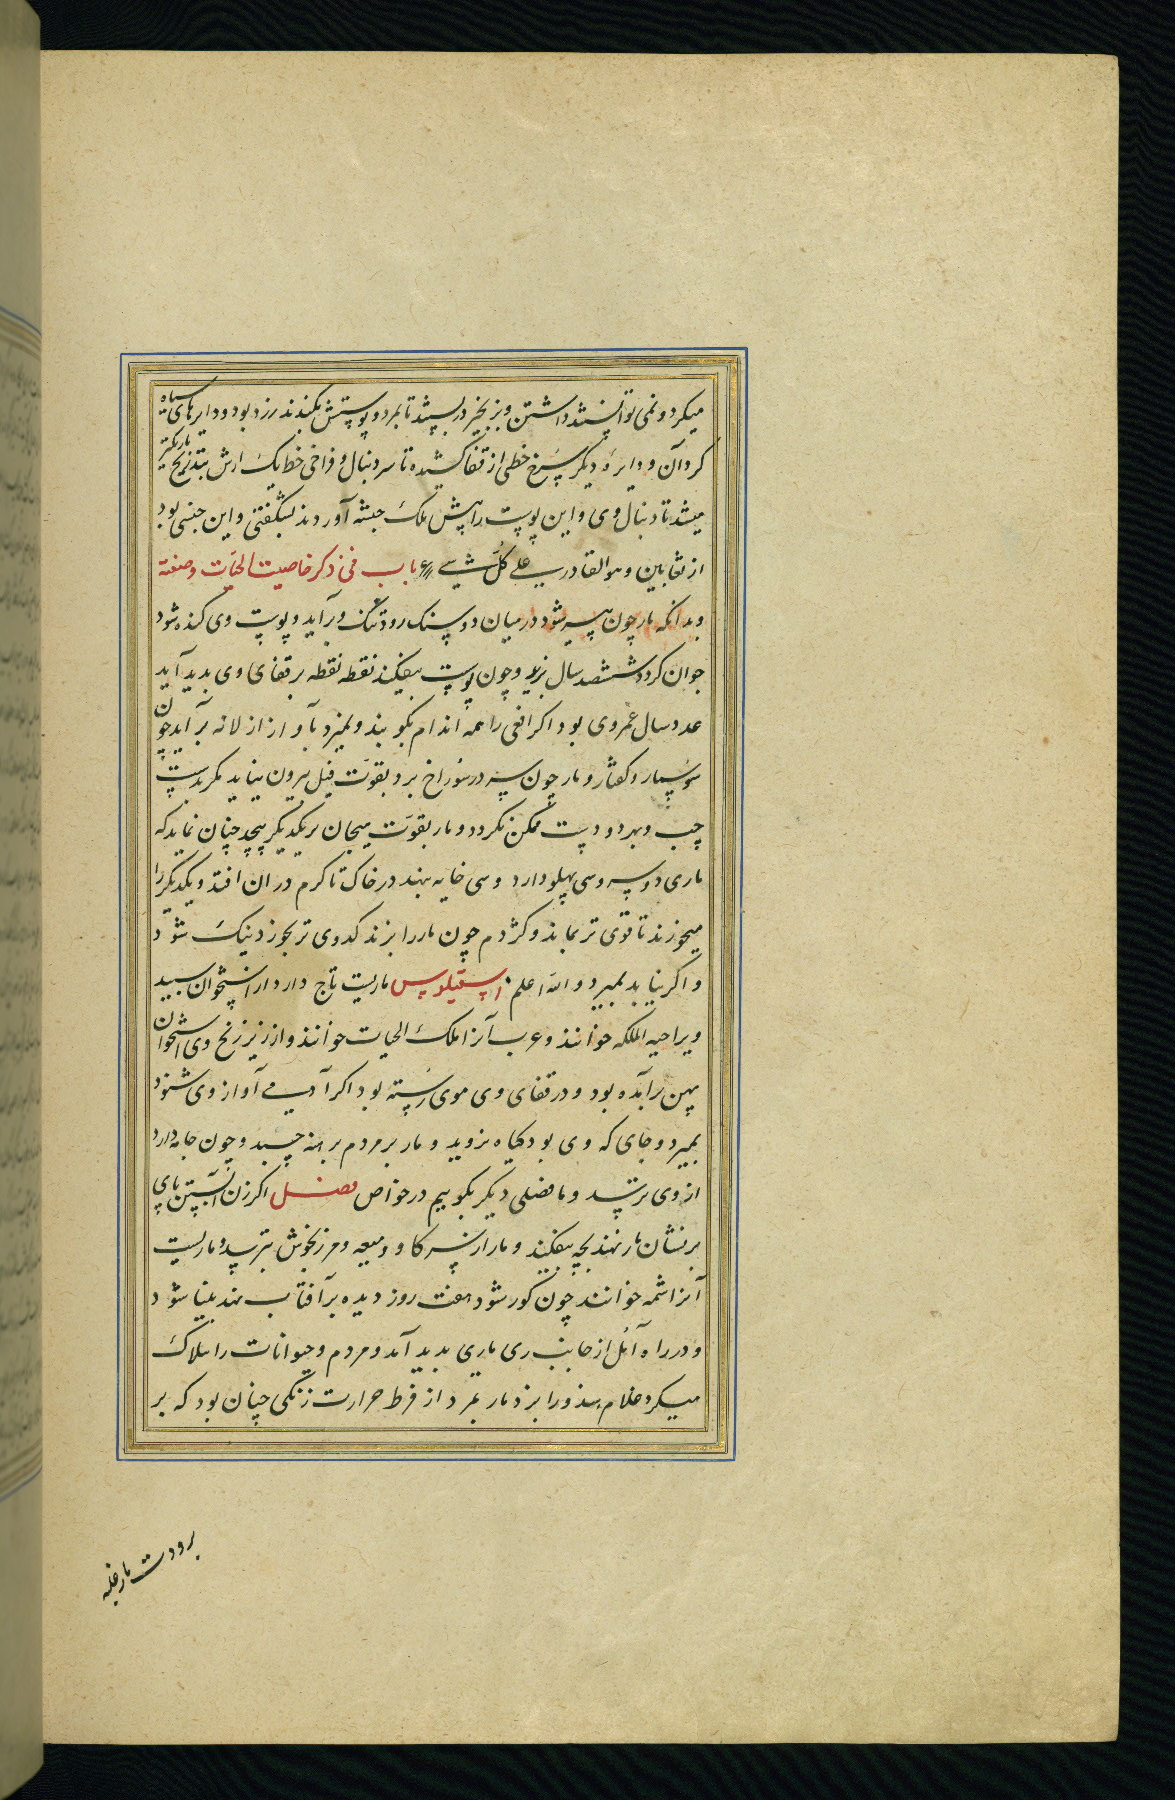 میکرد و نمی توانستند داشتن و بزنجیر در بستند تا بمرد و پوستش بکندند زرد بود و دایرهای سیاه
کرد آن و دایرهٔ دیکر سرخ خطی از قفا کشیده تا سر دنبال و فراخی خط یک ارش بتدریج باریکتر
میشد تا دنبال وی و این پوست را پیش ملک حبشه آوردند بشگفتی و این جنسی بود
از ثعابین و هو القادر علی کل شیء باب فی ذکر خاصیت الحیات و صفته
و بدانکه مار چون پیر شود در میان دو سنک رود تنک و برآید و پوست وی کنده شود
جوان کردد ششصد سال بزید و چون پوست بیفکند نقطه نقطه بر قفای وی بدید آید
عدد سال عمر وی بود اکر افعی را همه اندام بکوبند و نمیرد بآواز از لانه برآید چون
سوسمار و کفتار و مار چون سر در سوراخ برد بقوت فیل بیرون نیاید مکر بدست
چپ و بهر دو دست ممکن نکردد و مار بقوت بیجان بر یکدیکر پیچد چنان نماید که
ماری دو سر و سی پهلو دارد و سی خایه بنهد در خاک تا کرم در آن افتد و یکدیکر را
میخورند تا قوی تر بماند و کژدم چون مار را بزند کدوی تر بخورد نیک شود
و اکر نیابد بمیرد و الله اعلم اسقیلوس ماریست تاج دارد از استخوان سپید
ویرا حیه الملکه خوانند و عرب آنرا ملک الحیات خوانند و از زیر زنخ وی استخوان
پهن برآمده بود و در قفای وی موی رسته بود اکر آدمی آواز وی شنود
بمیرد و جای که وی بود کیاه نروید و مار بر مردم برهنه چسبد و چون جامه دارد
از وی بترسد و ما فصلی دیکر بکوییم در خواص فصل اکر زن آبستن پای
بر نشان مار نهد بچه بیفکند و مار از سر کاو و میعه و مرزنجوش بترسد و ماریست
آنرا شمه خوانند چون کور شود هفت روز دیده بر آفتاب نهد بینا شود
و در راه آمل از جانب ری ماری بدید آمد و مردم و حیوانات را هلاک
میکرد غلام هندو را بزد مار بمرد از فرط حرارت زنکی چنان بود که بر
برودت مار غلبه